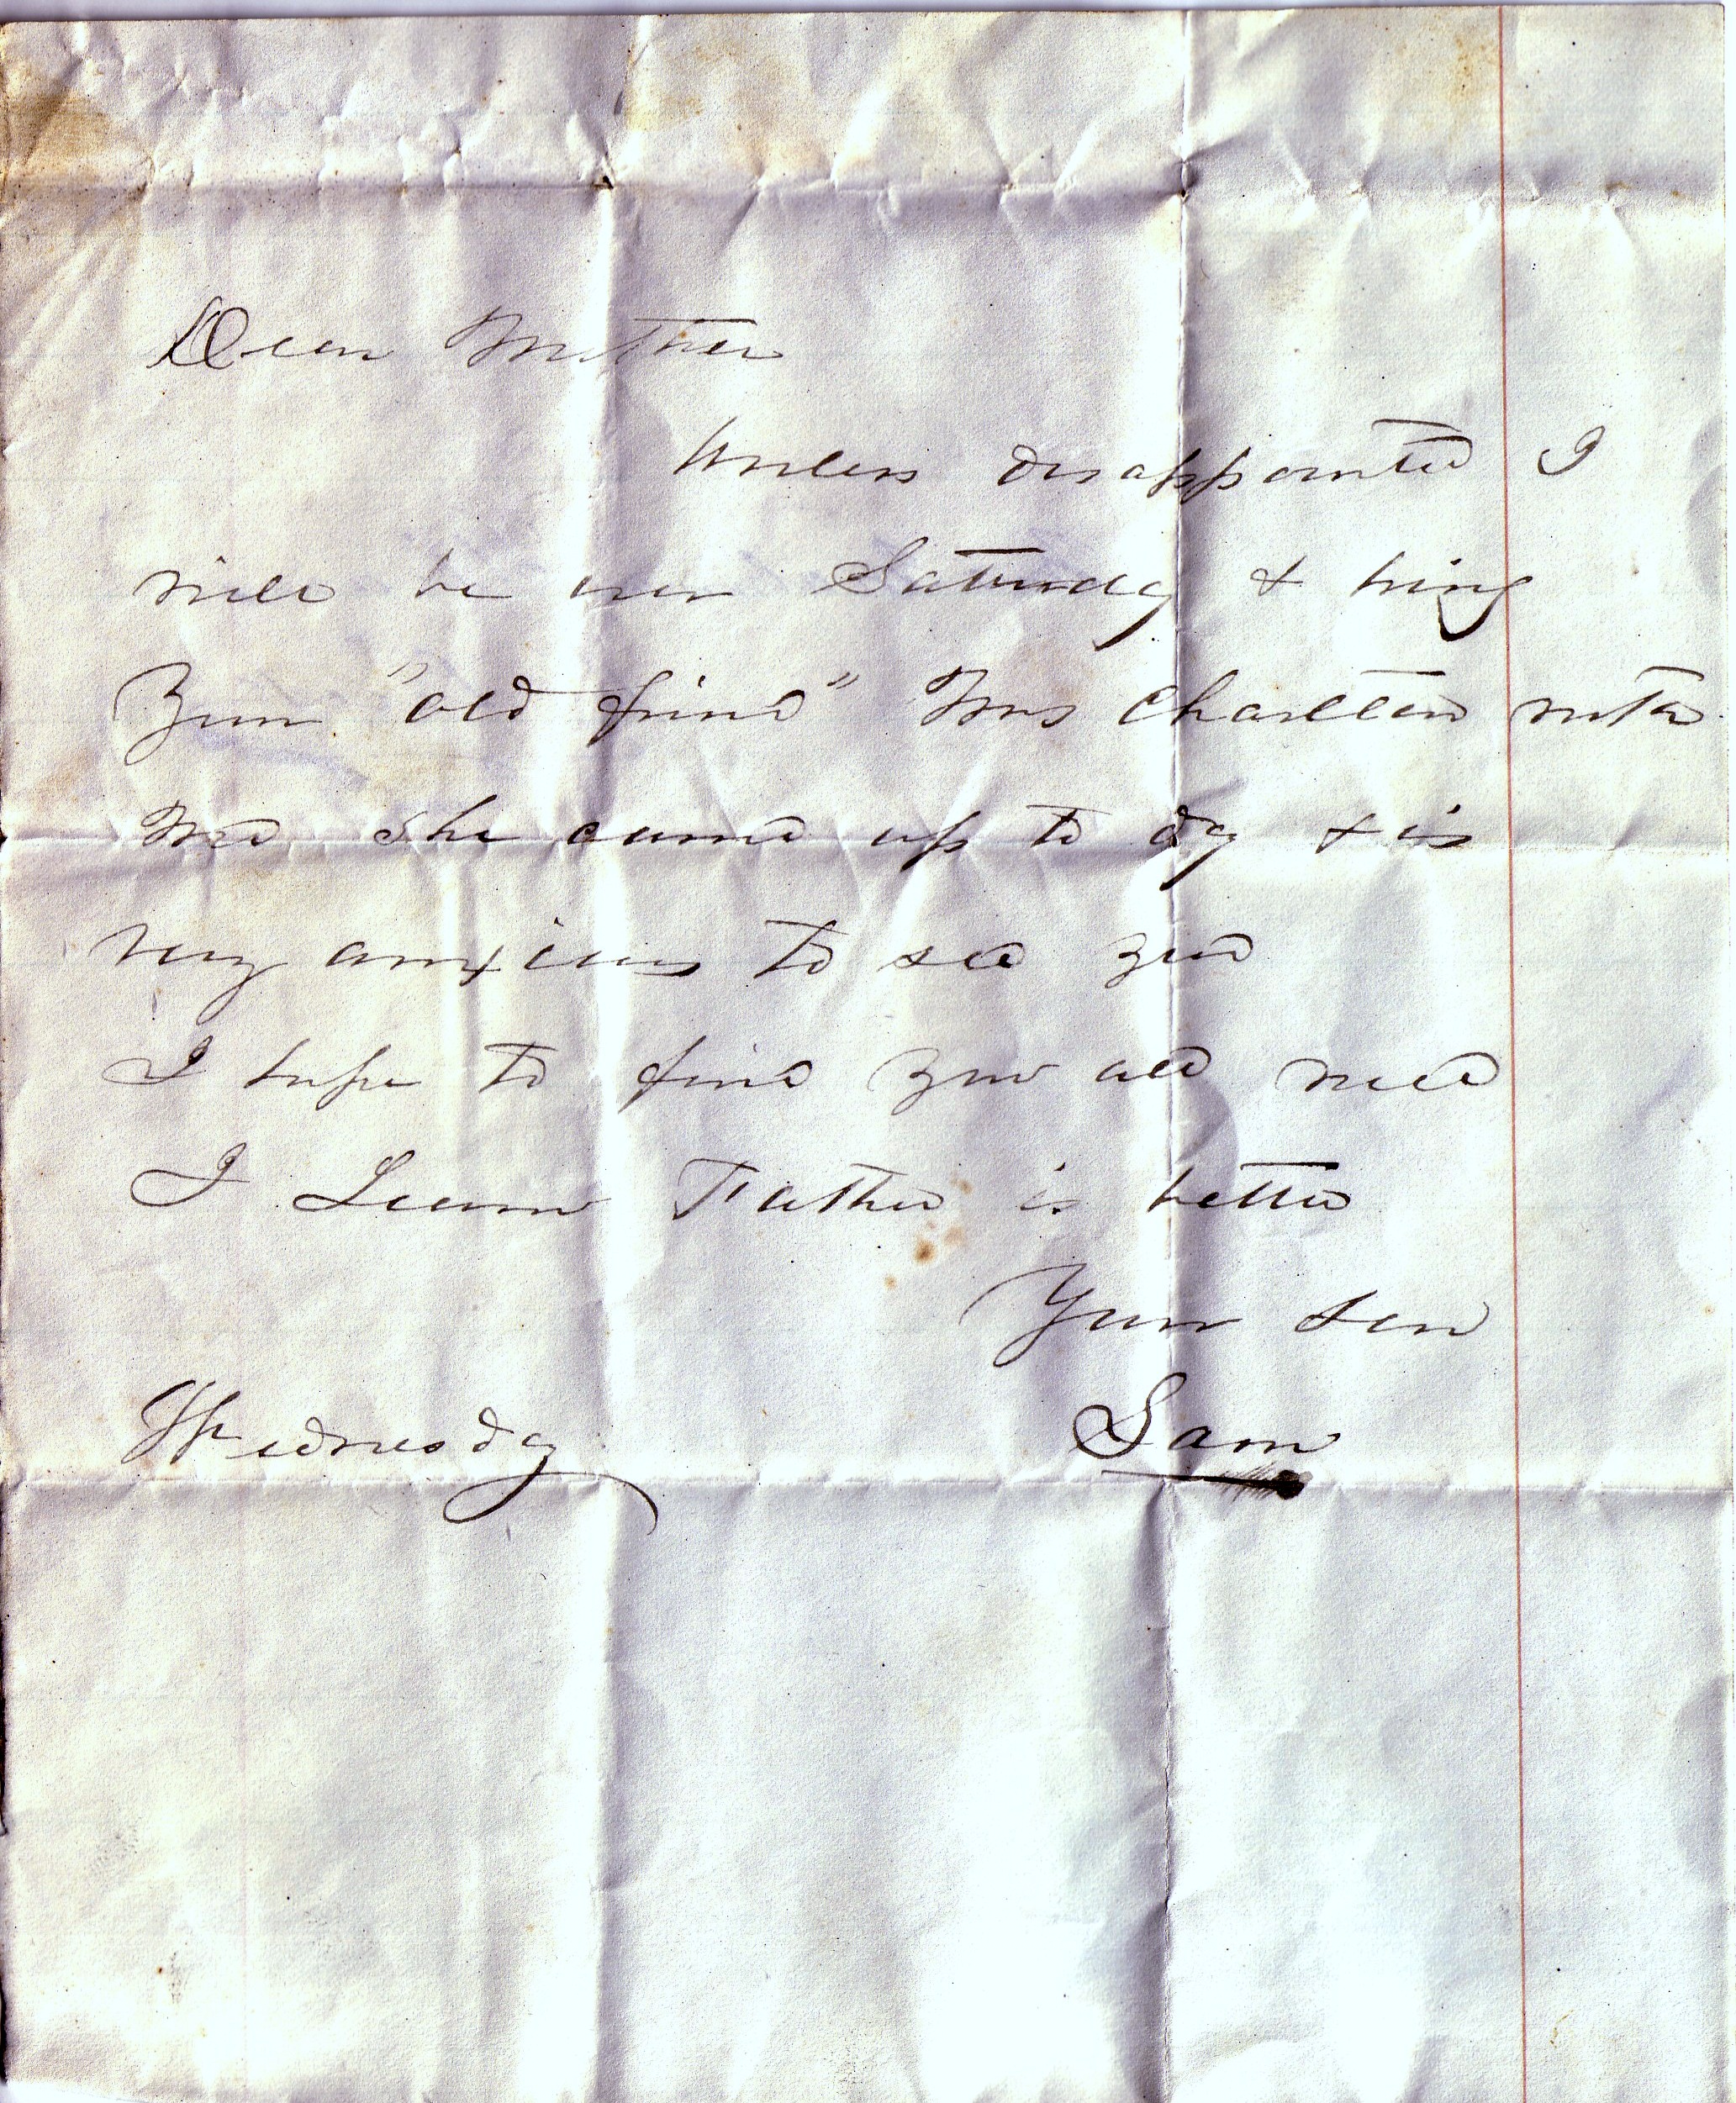 Dear Mother
Unless disappointed I
will be over Saturday & bring
Your "old friend" Mrs Charlton with
Me She came up to day & is
very anxious to see you
I hope to find you all well
I Learn Father is better
Your son
Wednesday Sam